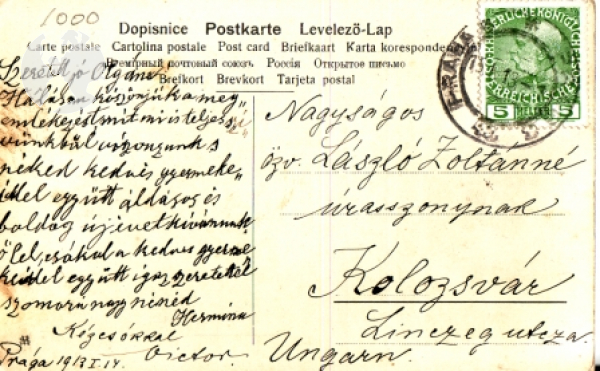 1000
Dopisnice Postkarte Levelező-Lap
Carte postale Cartolina postale Post card Briefkaart Karta korespondencyjna
Всемірный почтовый союзъ. Россія Открытое письмо
Brefkort Brevkort Tarjeta postal
Szeretett jó Olgám
Hálásan köszönjük a meg„
emlékezést mit mi is teljes szi„
vünkből viszonzunk s
néked kedves gyermeke„
iddel együtt áldásos és
boldog új évet kívánunk
ölel, csókol a kedves gyerme
keiddel együtt igaz szeretettel
szomorú nagy nénéd
Hermina
Kézcsókkal
Victor.
Prága 1913 I. 14.
PRAHA
5 HELLER 5
Nagyságos
özv. László Zoltánné
úrasszonynak
Kolozsvár
Linczeg utcza.
Ungarn.